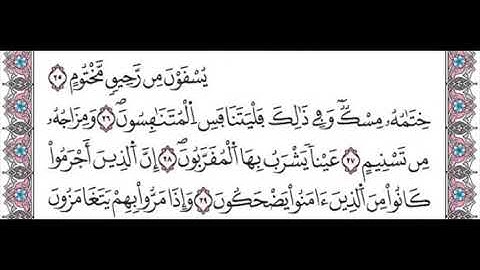 يُسْقَوْنَ مِن رَّحِيقٖ مَّخْتُومٍ ٢٥
خِتَٰمُهُۥ مِسْكٞۖ وَفِے ذَٰلِكَ فَلْيَتَنَافَسِ اِ۬لْمُتَنَٰفِسُونَۖ ٢٦ وَمِزَاجُهُۥ
مِن تَسْنِيمٍ ٢٧ عَيْناٗ يَشْرَبُ بِهَا اَ۬لْمُقَرَّبُونَۖ ٢٨ إِنَّ اَ۬لذِينَ أَجْرَمُواْ
كَانُواْ مِنَ اَ۬لذِينَ ءَامَنُواْ يَضْحَكُونَ ٢٩ وَإِذَا مَرُّواْ بِهِمْ يَتَغَامَزُونَ